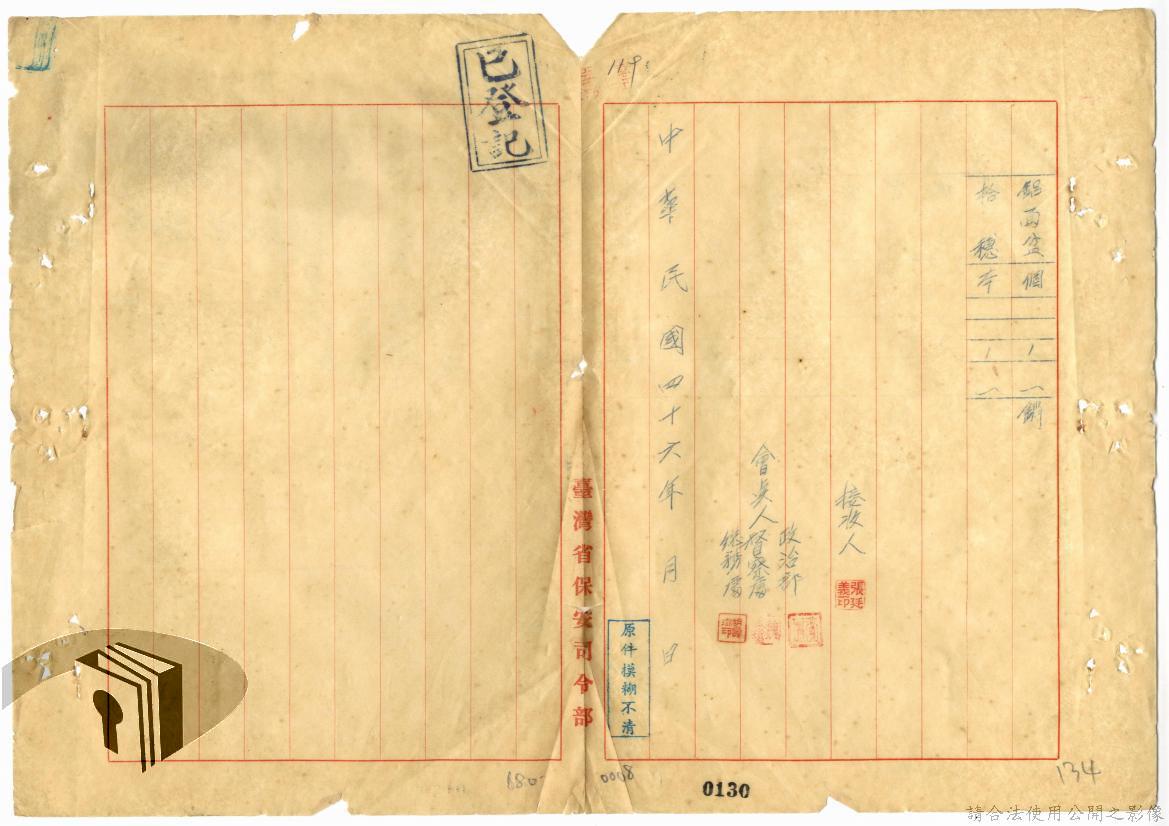 鋁面盆 個 1 一 銷
拾穗 本 1 一
接收人
張廷義印
會點人
政治部
督察處
總務處
中華民國四十六年 月 日
原件模糊不清
臺灣省保安司令部
已登記
119
0008
0130
134
請合法使用公開之影像